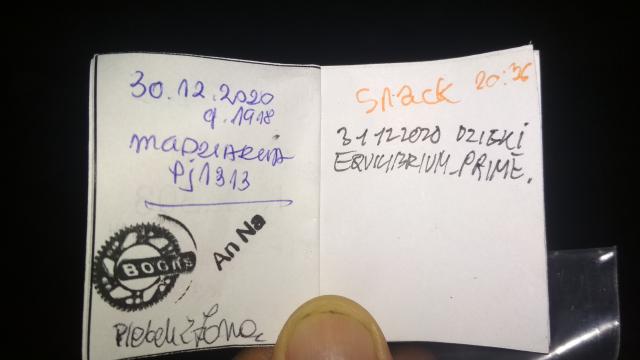 30.12.2020
g.1918
MADZIARELLA
Pj1313
BOOKS
An Na
Plebek z Żoną
Snack 20:36
31122020 DZIEKI
EQUILIBRIUM_PRIME.